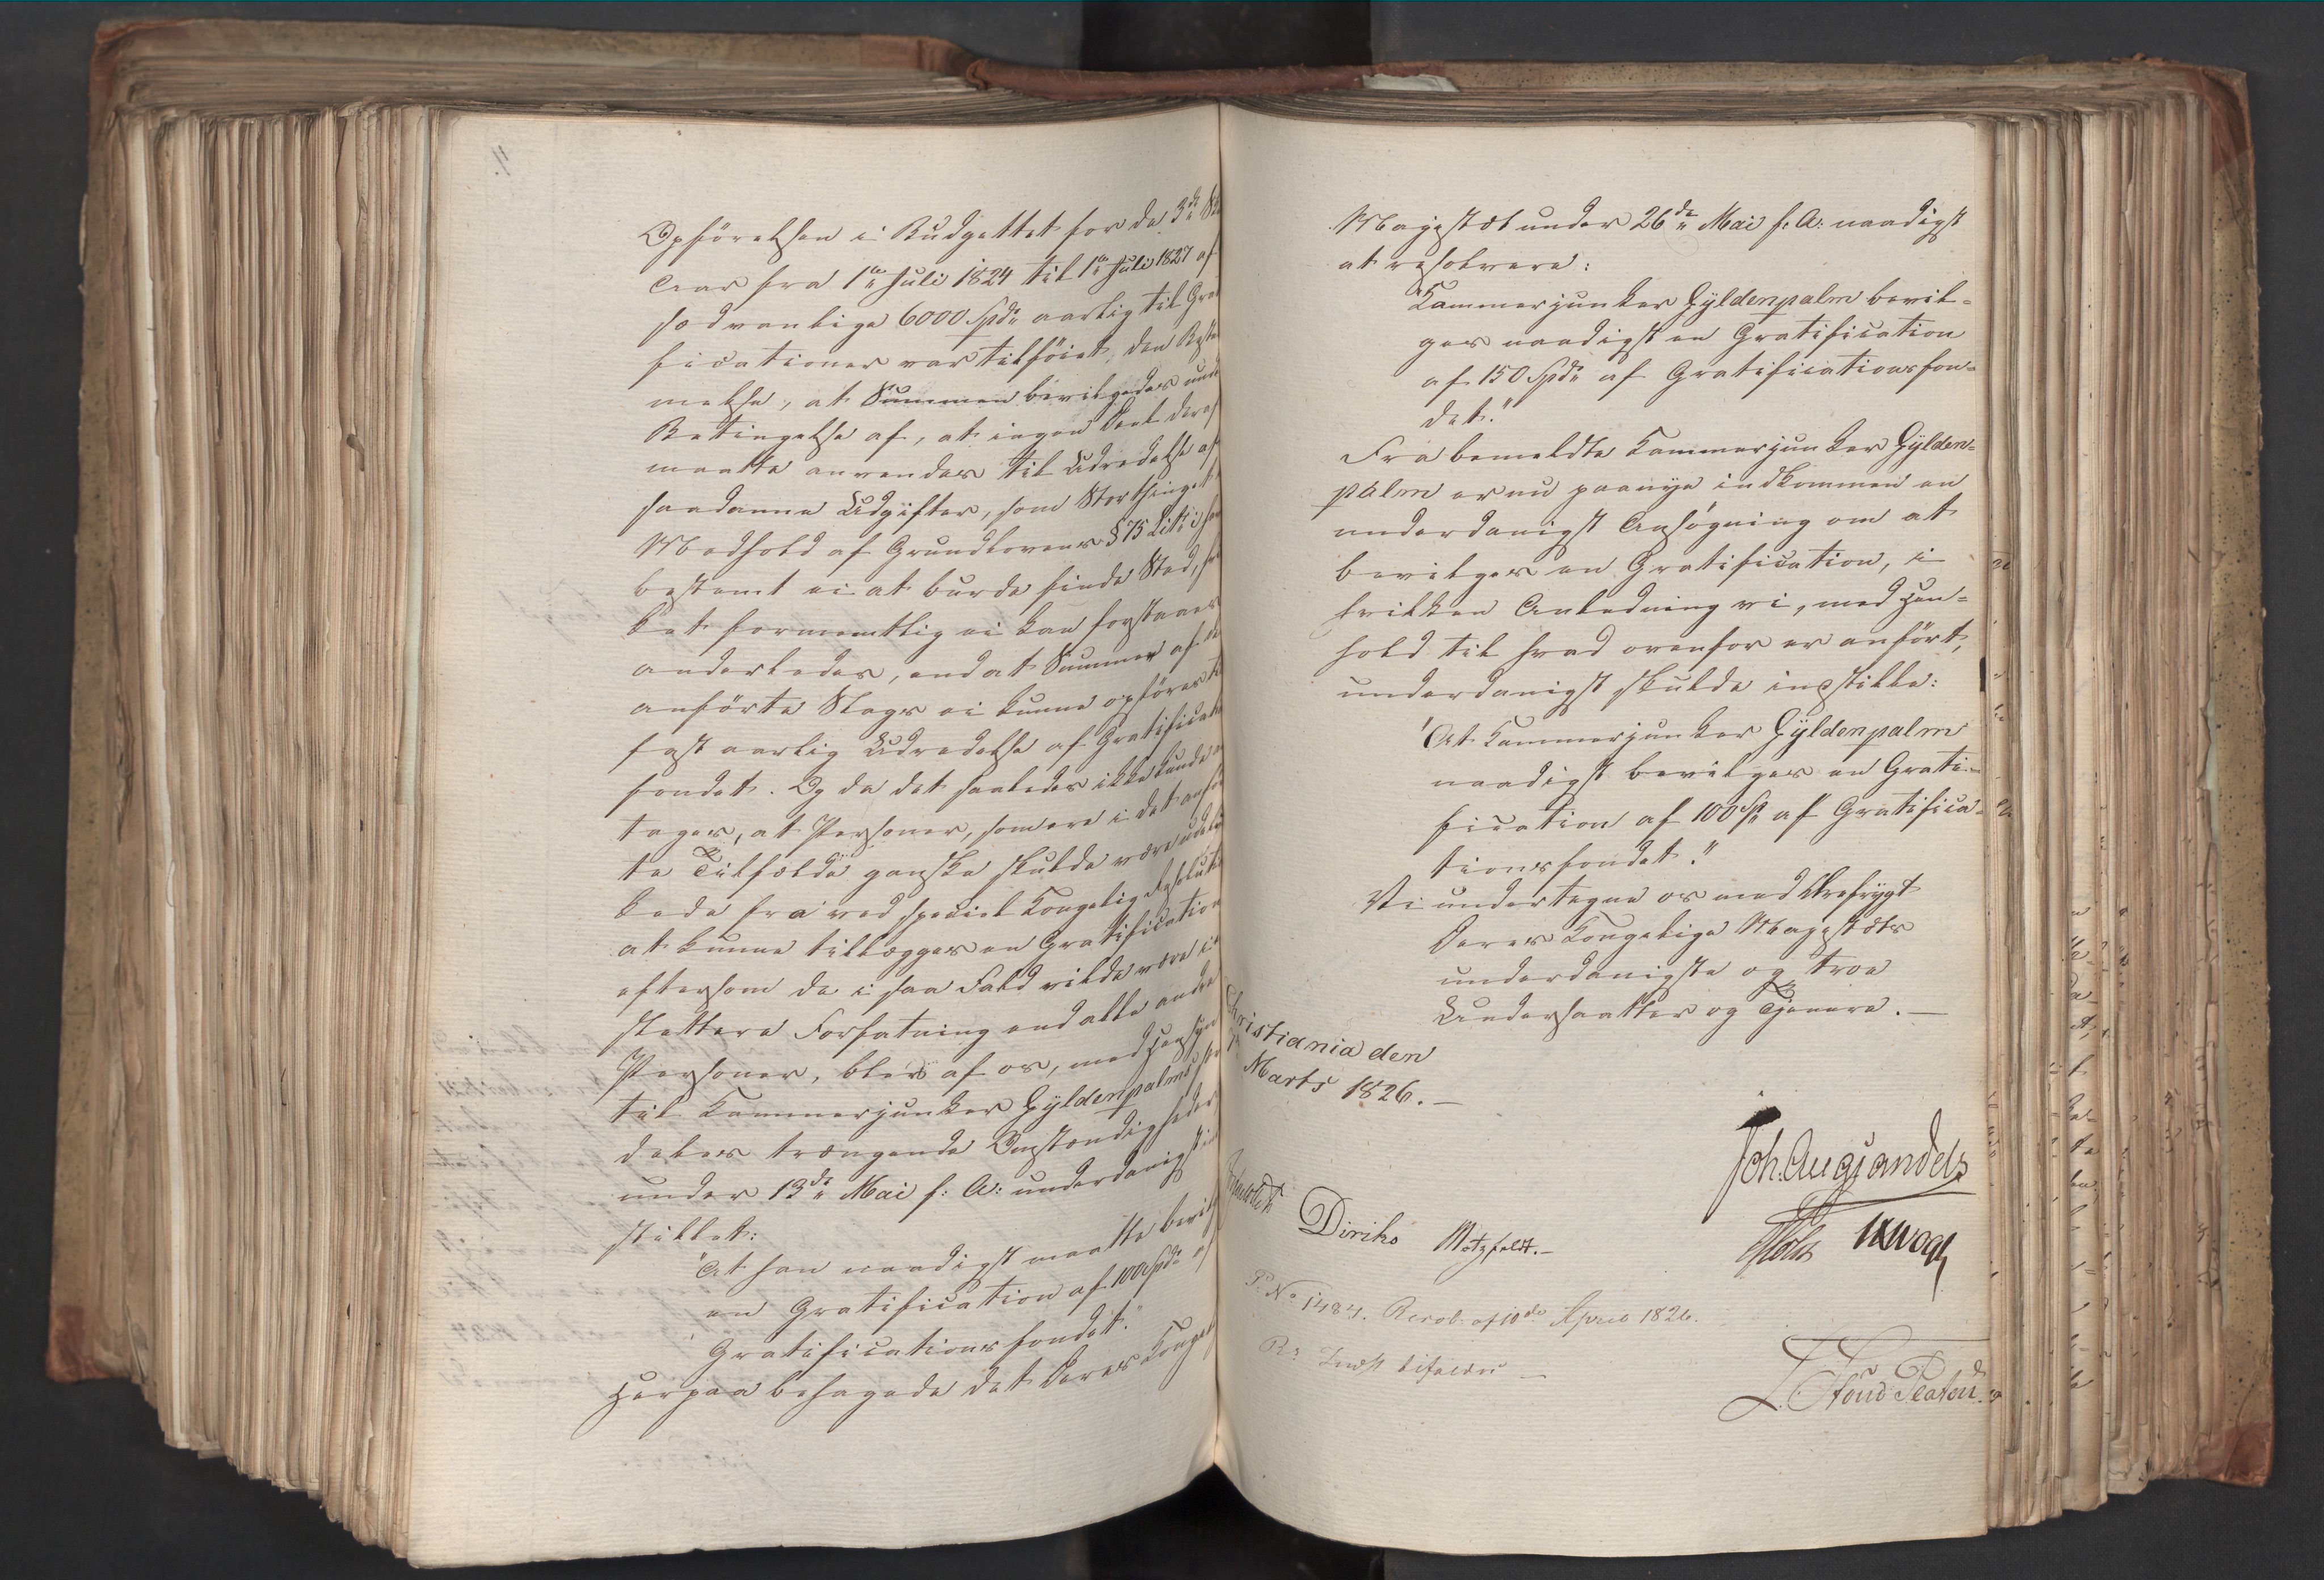 Opførelsen i Budgettet for de 3de
Aar fra 1te Juli 1824 til 1te Juli 1827 af
sædvanlige 6000 Spd aarlig til Gra
ficationer var tilføiet den Beste
melse, at Summen bevilgedes unde
Betingelse af, at ingen Deel deraf
maatte anvendes til Udredelse af
saadanne Udgifter, som Storthinget i
Medhold af Grundlovens § 75 Litr i har
bestemt ei at burde finde Sted, h
ket formeentlig ei kan forstaaes
anderledes, end at Summer af de
anførte Slags ei kunne opføres til
fast aarlig Udredelse af Gratificat
fondet. Og da det saaledes ikke kunde an
tages, at Personer, som ere i det anfør
te Tilfælde ganske skulde være udeluk
kede fra ved speciel Kongelig Resoluti
at kunne tillægges en Gratification
eftersom de i saa Fald vilde være i
slettere Forfatning end alle andre
Personer, blev af os, med Hensyn
til Kammerjunker Gyldenpalms
deles trængende Omstændigheder
under 13de Mai f: A: underdanigst in
stillet:
"At han naadigst maatte bevilg
en Gratification af 100 Spd af
Gratificationsfondet."
Herpaa behagede det Deres Konge
Majestæt under 26de Mai f: A: naadigst
at resolvere:
"Kammerjunker Gyldenpalm bevil-
ges naadigst en Gratification
af 150 Spd af Gratificationsfon-
det."
Fra bemeldte Kammerjunker Gylden-
palm er nu paanye indkommen en
underdanigst Ansøgning om at
bevilges en Gratification, i
hvilken Anledning vi, med Hen-
hold til hvad ovenfor er anført,
underdanigst skulde indstille:
"At Kammerjunker Gyldenpalm
naadigst bevilges en Grati-
fication af 100 Sp af Gratifica-
tionsfondet."
Vi undertegne os med Ærefrygt
Deres Kongelige Majestæts
underdanigste og troe
Undersaatter og Tjenere.-
Christiania den
Marts 1826.-
Joh. Aug. Sandels
Diriks Motzfeldt.-
Holst
P. No 1484. Resol. af 10de April 1826.
Rs Indst bifaldes -